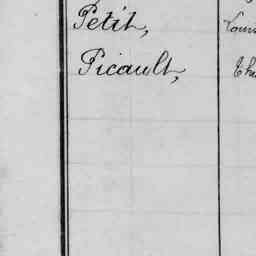 Petit,
Picault,